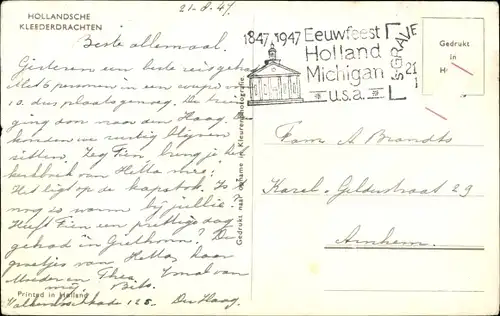 HOLLANDSCHE
KLEEDERDRACHTEN
21-8-'47.
Beste allemaal.
Gisteren een beste reis gehad
Met 6 personen in een coupé voor
10. dus plaats genoeg. De trein
ging door naar den Haag. Dus
konden we rustig blijven
sitten. Zeg Fien, breng je het
kerkboek van Hetta mee?
Het ligt op de kapstok. Is 't
nog zo warm bij jullie?
Heeft Fien een prettige dag
gehad in Giethoorn? De
groetjes van Hetta, haar
Moeder en Thea, 1 maal van
mij, Bets.
125. Den Haag.
Printed in Holland
Gedrukt naar opname in Kleurenphotografie
1847 1947 Eeuwfeest
Holland
Michigan
u.s.a.
'S GRAVE
21
Gedrukt
in
H
Fam A Brandts
Karel v Gelderstraat 29
Arnhem.